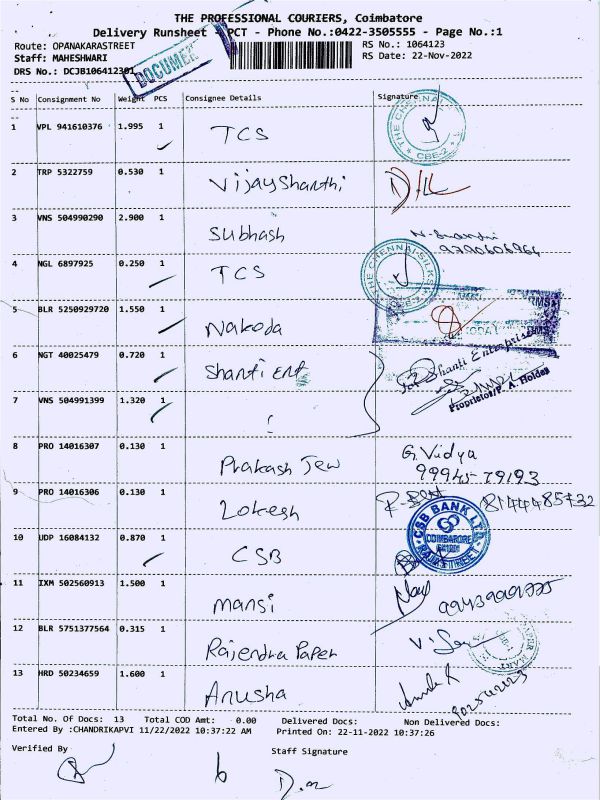 THE PROFESSIONAL COURIERS, Coimbatore
Delivery Runsheet - PCT - Phone No.:0422-3505555 - Page No.:1
Route: OPANAKARASTREET RS No.: 1064123
Staff: MAHESHWARI RS Date: 22-Nov-2022
DRS No.: DCJB106412301
DOCUMENT
S No Consignment No Weight PCS Consignee Details Signature
1 VPL 941610376 1.995 1 TCS
THE CHENNAI CBE-2
2 TRP 5322759 0.530 1 Vijayshanthi
3 VNS 504990290 2.900 1 Subhash
4 NGL 6897925 0.250 1 TCS
THE CHENNAI SILKS
5 BLR 5250929720 1.550 1 Nakoda
6 NGT 40025479 0.720 1 Shanti Ent
For Shanti Enterprises
7 VNS 504991399 1.320 1
Proprietor/P. A. Holder
8 PRO 14016307 0.130 1 Prakash Jew G. Vidya
99945-79193
9 PRO 14016306 0.130 1 Lokesh
CSB BANK LTD. COIMBATORE
10 UDP 16084132 0.870 1 CSB
11 IXM 502560913 1.500 1 mansi
12 BLR 5751377564 0.315 1 Rajendra Paper
13 HRD 50234659 1.600 1 Anusha
Total No. Of Docs: 13 Total COD Amt: 0.00 Delivered Docs: Non Delivered Docs:
Entered By :CHANDRIKAPVI 11/22/2022 10:37:22 AM Printed On: 22-11-2022 10:37:26
Verified By Staff Signature